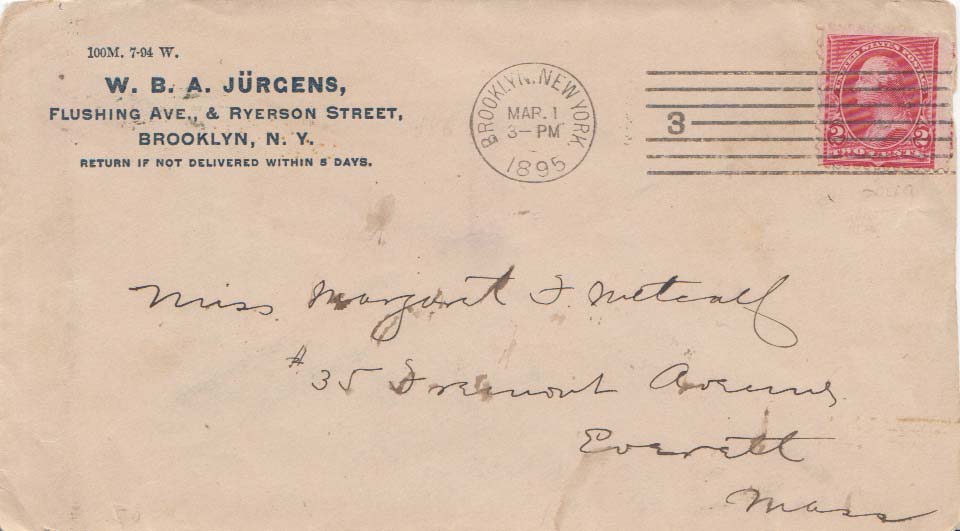 100M. 7-94 W.
W. B. A. JÜRGENS,
FLUSHING AVE., & RYERSON STREET,
BROOKLYN, N. Y.
RETURN IF NOT DELIVERED WITHIN 5 DAYS.
BROOKLYN, NEW YORK.
MAR. 1
3-PM
1895
3
UNITED STATES POSTAGE
2 2
TWO CENTS
Miss Margaret F. Metcalf
#35 Fremont Avenue
Everett
Mass